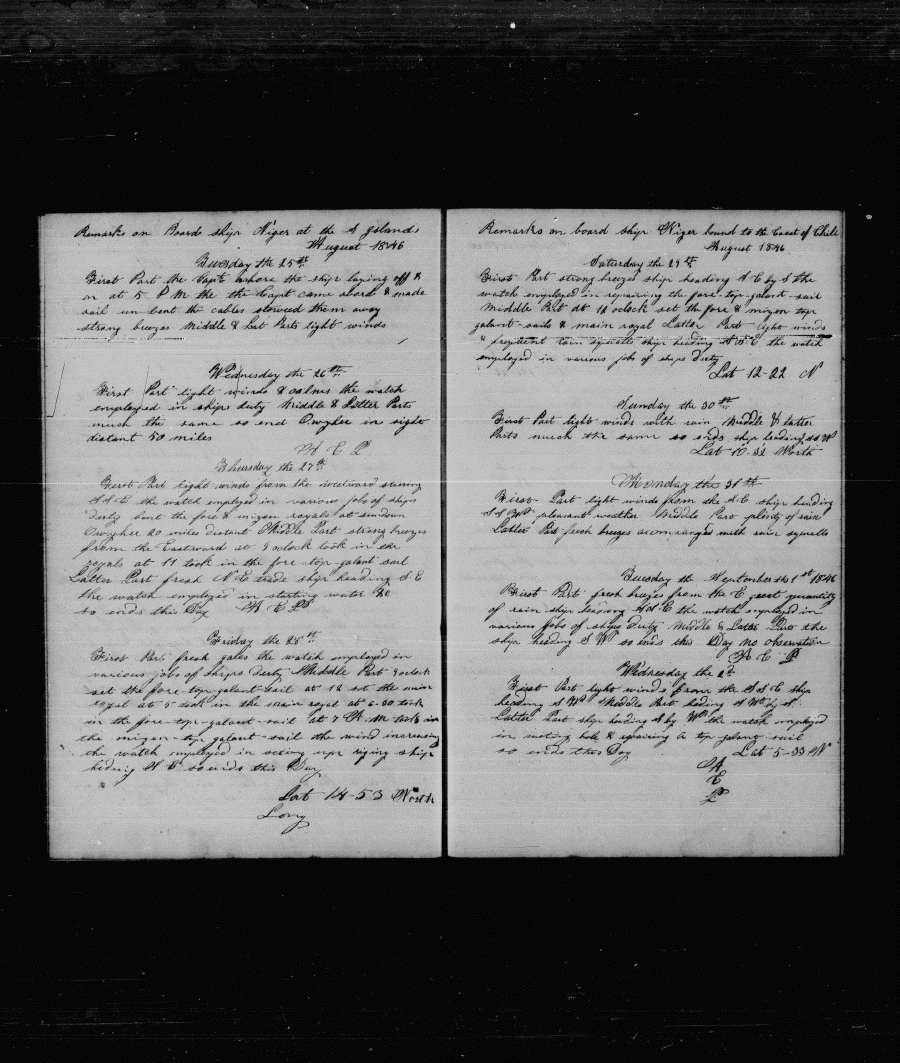 Remarks on Board ship Niger at the S Islands
August 1846
Tuesday the 25th
First Part the Capt ashore the ship laying off &
on at 5 P M the the Capt came abord & made
sail un bent the cables stowed them away
strong breezes Middle & Last Parts light winds
Wednesday the 26th
First Part light winds & calms the watch
employed in ships duty Middle & Latter Parts
much the same so end Owyhee in sight
distant 50 miles
H E P
Thursday the 27th
First Part light winds from the westward stering
S S E the watch employed in various jobs of ships
duty bent the fore & mizen royals at sundown
Owyhee 20 miles distant Middle Part strong breezes
from the Eastward at 9 oclock took in the
royals at 11 took in the fore top galant sail
Latter Part fresh N E trade ship heading S E
the watch employed in starting water &c
so ends this Day H E P
Friday the 28th
First Part fresh gales the watch employed in
various jobs of ships duty Middle Part 9 oclock
set the fore-top-galant-sail at 12 set the main
royal at 5 took in the main royal at 6-30 took
in the fore-top-galant-sail at 7 A.M took in
the mizen-top galant-sail the wind increasing
the watch employed in seting upr riging ship
heding S E so ends this Day
Lat 14-53 North
Long
Remarks on board ship Niger bound to the Coast of Chili
August 1846
Saturday the 29th
First Part strong breezes ship heading S E by S the
watch employed in repairing the fore-top-galant-sail
Middle Part at 11 oclock set the fore & mizen top
galant-sails & main royal Latter Part light winds
& freqtent rain squalls ship heading S S E the watch
employed in various jobs of ships duty
Lat 12-22 N
Sunday the 30th
First Part light winds with rain Middle & latter
Parts much the same so ends ship heading S S W
Lat 10-32 North
Monday the 31th
First Part light winds from the S E ship heading
S S W pleasant weather Middle Part plenty of rain
Latter Part fresh breezes acompanyed with rain squalls
Tuesday the September the 1st 1846
First Part fresh breezes from the E great quantity
of rain ship heading S S E the watch employed in
various jobs of ships duty Middle & Latter Parts the
ship heading S W so ends this Day no observation
H E P
Wednesday the 2d
First Part light winds from the S S E ship
heding S W Middle Part heding S W by S
Latter Part ship heading S by W the watch employed
in & repairing a top-galant-sail
so ends this Day Lat 5-33 N
H
E
P